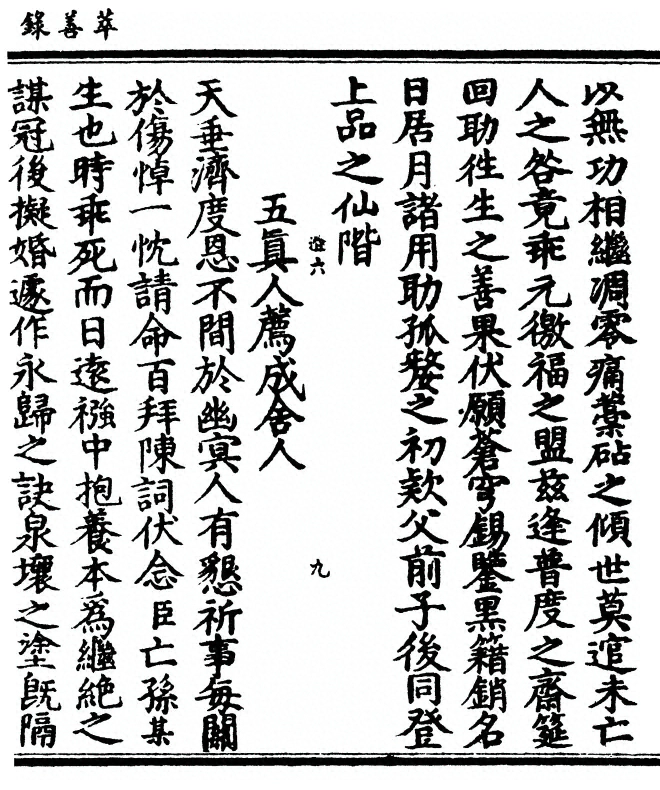 萃善錄
以無功相繼凋零痛藁砧之傾世莫逭未亡
人之咎竟乖元徼福之盟茲逢普度之齋筵
回助徃生之善果伏願蒼穹錫鑒黑籍銷名
日居月諸用助孤嫠之初欵父前子後同登
上品之仙階
遊六
九
五眞人薦成舍人
天垂濟度恩不間於幽冥人有懇祈事每關
於傷悼一忱請命百拜陳詞伏念臣亡孫某
生也時乖死而日遠襁中抱養本爲繼絶之
謀冠後擬婚遽作永歸之訣泉壤之塗旣隔